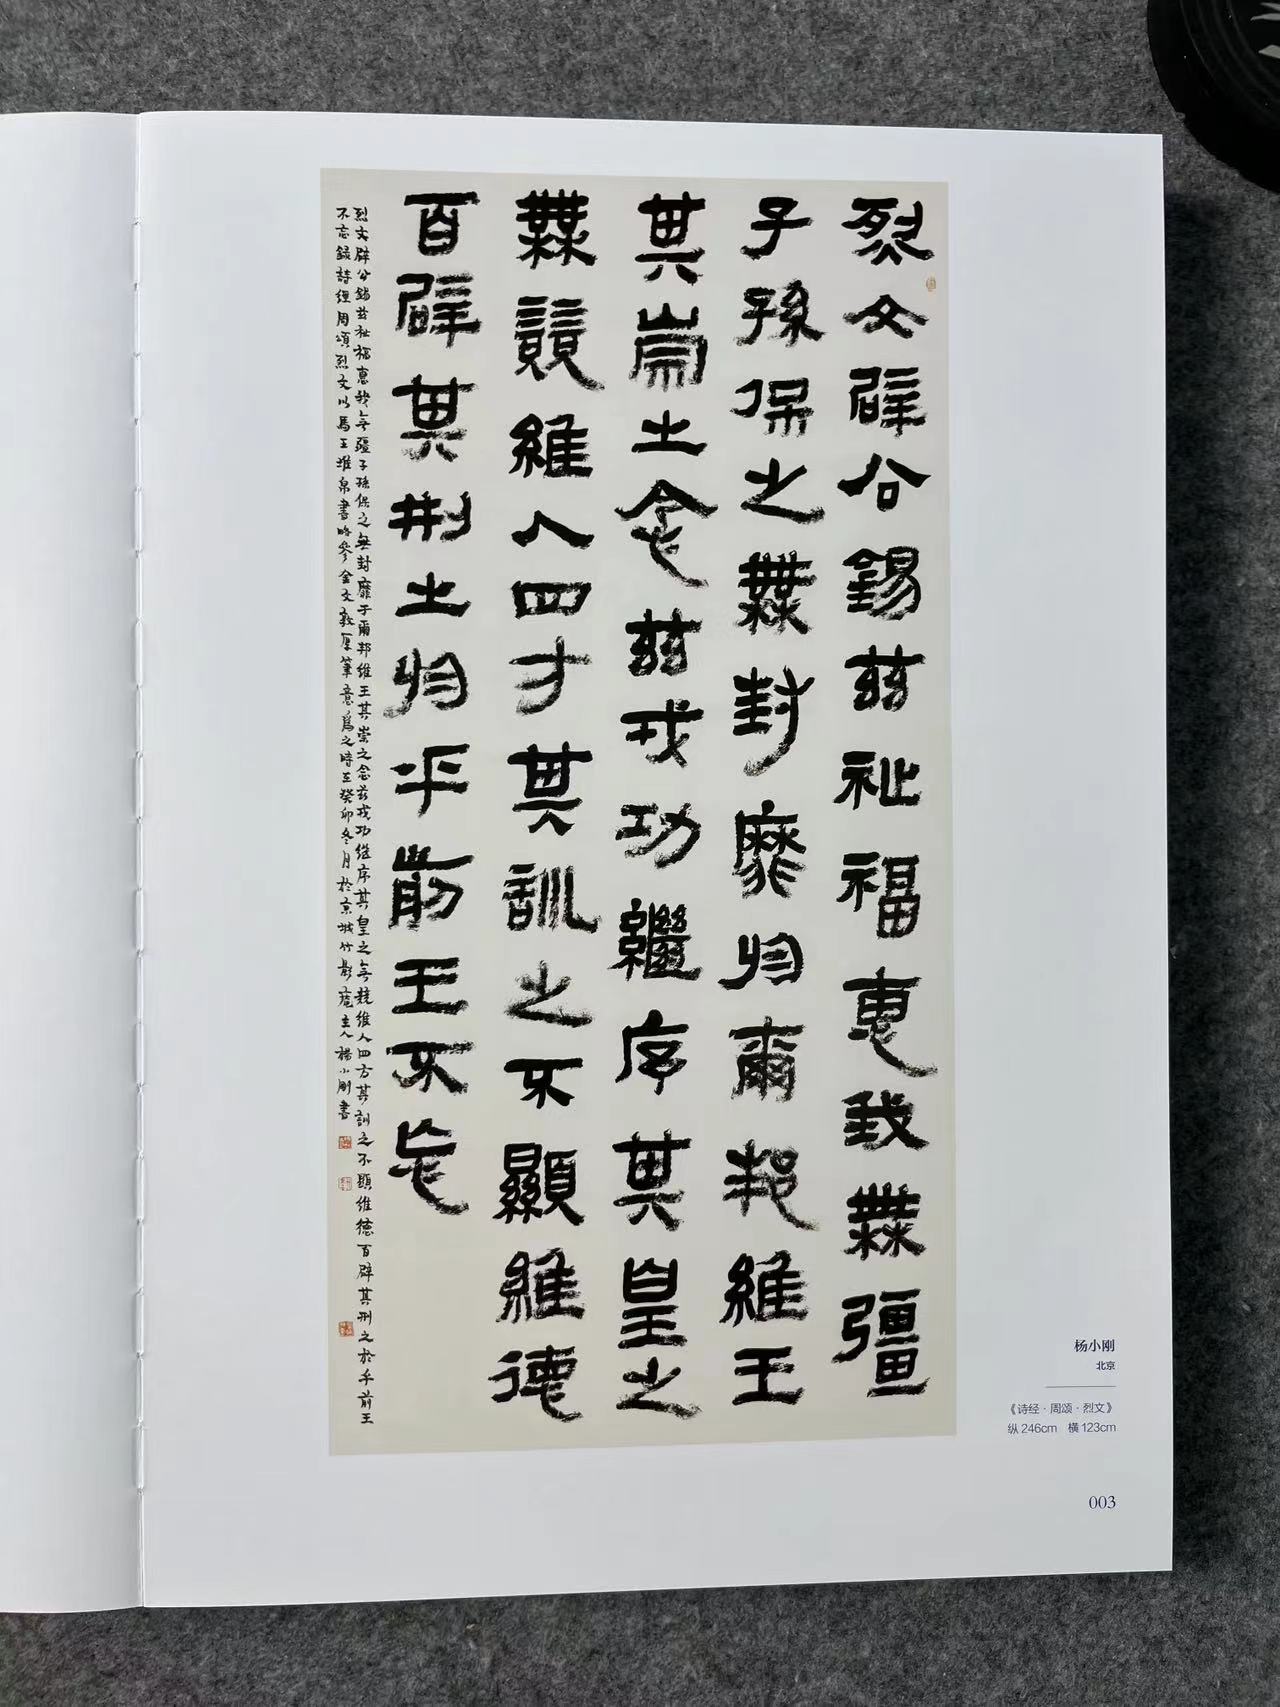 烈文辟公錫茲祉福惠我無疆
子孫保之無封靡于爾邦維王
其崇之念茲戎功繼序其皇之
無競維人四方其訓之不顯維德
百辟其刑之於乎前王不忘
烈文辟公錫茲祉福惠我無疆子孫保之無封靡于爾邦維王其崇之念茲戎功继序其皇之無競維人四方其訓之不顯維德百辟其刑之於乎前王
不忘錄詩經周頌烈文以馬王堆帛書略參金文敦厚筆意為之時在癸卯冬月於京城竹影庵主人楊小剛書
杨小刚
北京
《诗经·周颂·烈文》
纵246cm 横123cm
003